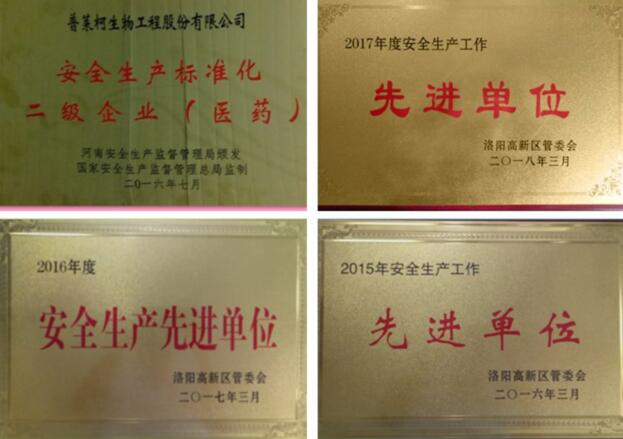 普莱柯生物工程股份有限公司
安全生产标准化
二级企业（医药）
河南安全生产监督管理局颁发
国家安全生产监督管理总局监制
二〇一六年七月
2017年度安全生产工作
先进单位
洛阳高新区管委会
二〇一八年三月
2016年度
安全生产先进单位
洛阳高新区管委会
二〇一七年三月
2015年安全生产工作
先进单位
洛阳高新区管委会
二〇一六年三月